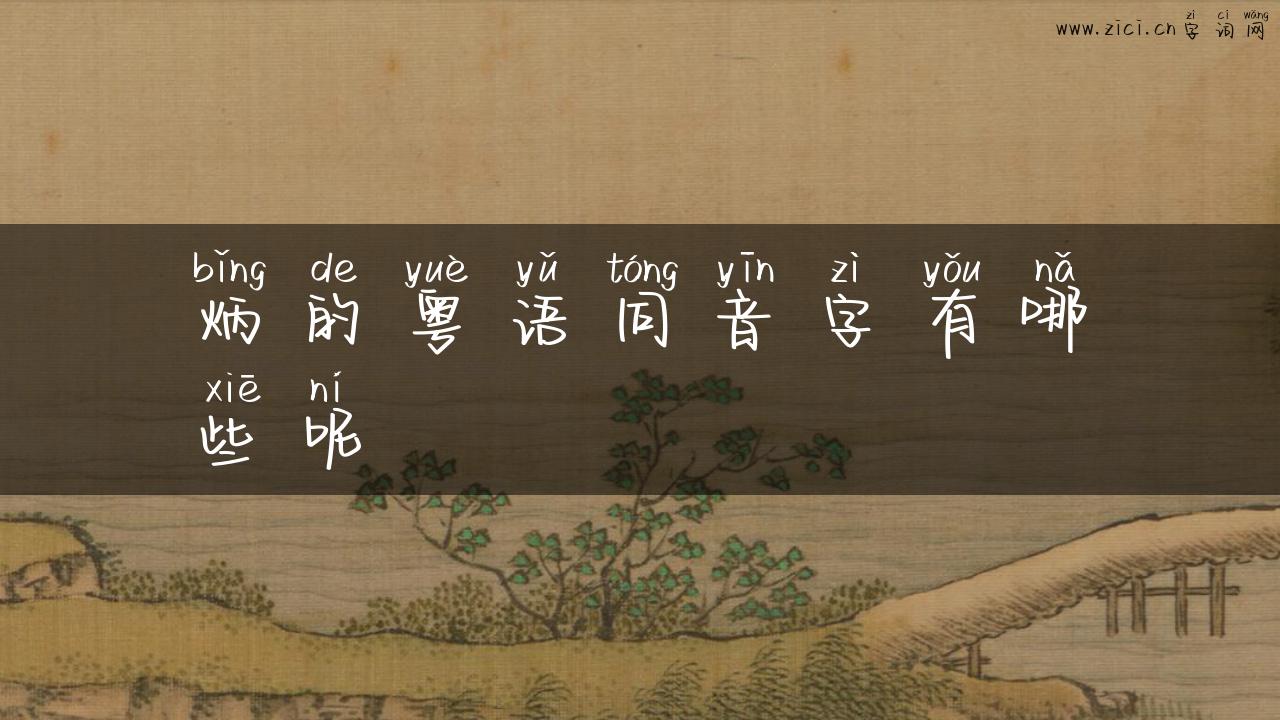 zì cí wǎng
www.zici.cn 字词网
bǐng de yuè yǔ tóng yīn zì yǒu nǎ
炳的粤语同音字有哪
xiē ní
些呢